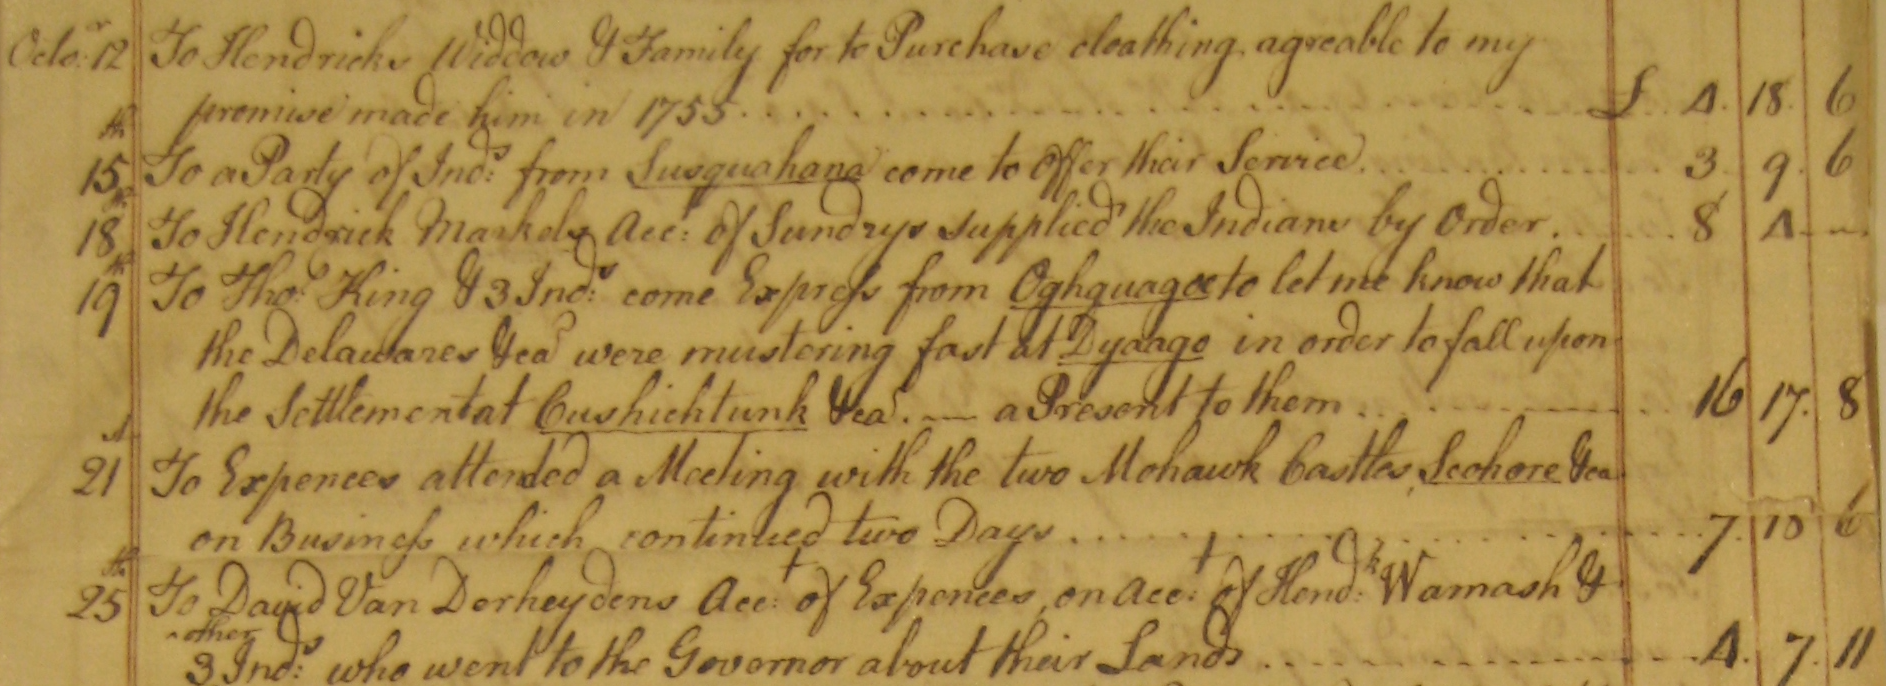 Octo:r 12 To Hendricks Widdow & Family for to Purchase cloathing agreable to my
promise made him in 1755 . . . . £ 4. 18. 6
15th To a Party of Inds: from Susquahana come to offer their Service . . . . 3. 9. 6
18th To Hendrick Markels Acct: of Sundrys supplied the Indians by Order . . . . 8 4 —
19th To Thos: King & 3 Inds: come Express from Oghquagoe to let me know that
the Delawares &ca were mustering fast at Dyaago in order to fall upon
the Settlement at Cushichtunk &ca. — a Present to them . . . . 16 17. 8
21st To Expences attended a Meeting with the two Mohawk Castles, Scohore &ca
on Business which continued two Days . . . . 7. 10 6
25th To David Van Derheydens Acct: of Expences, on Acct: of Hendk: Wamash &
3 other Inds: who went to the Governor about their Lands . . . . 4. 7. 11